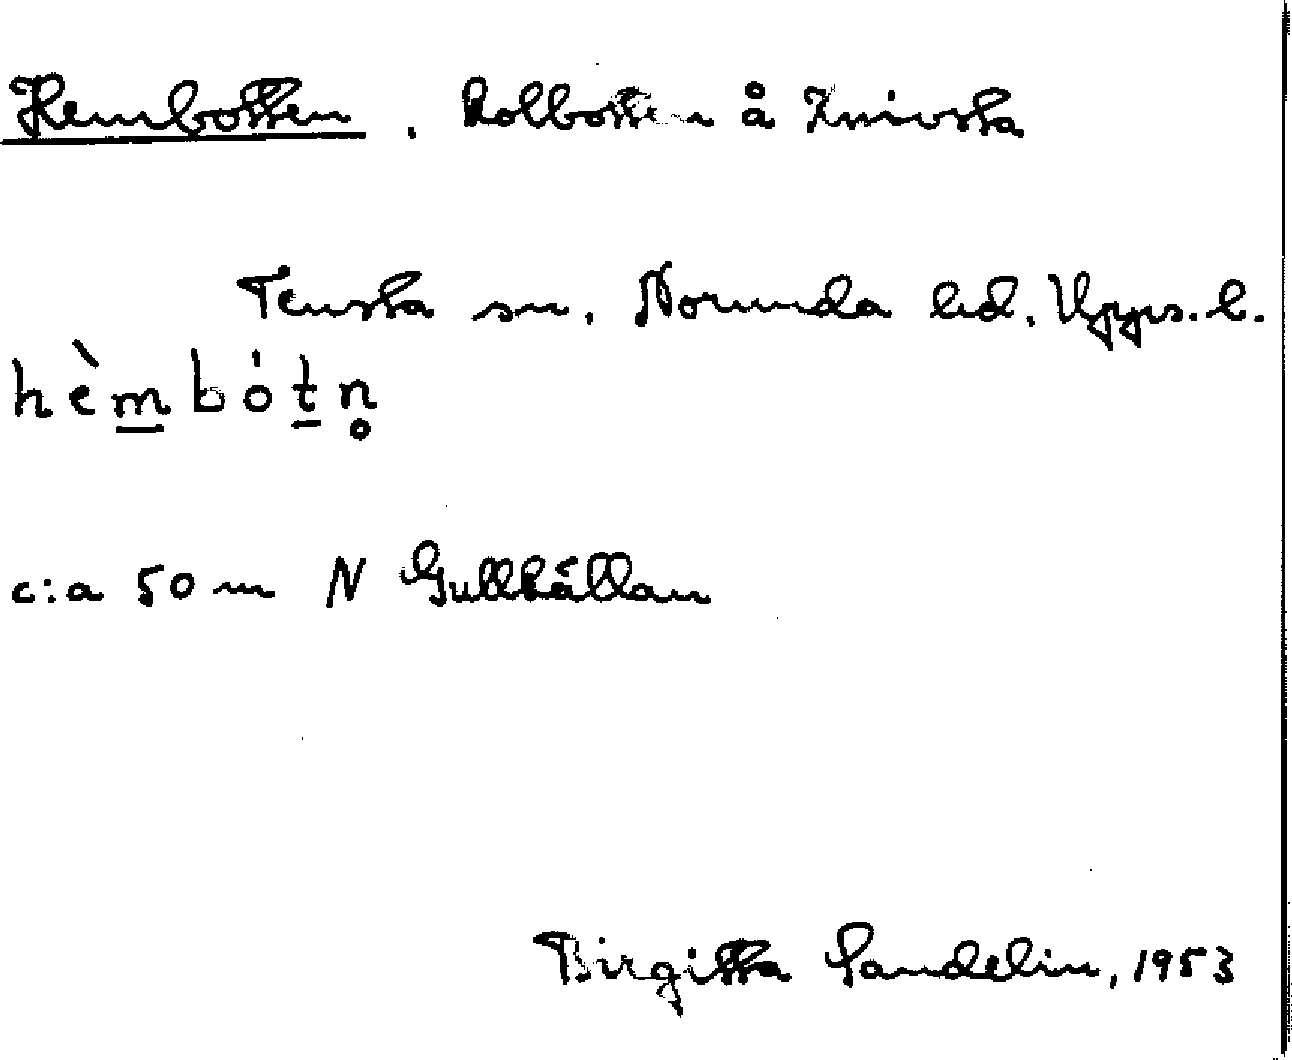 Hembotten. Kolbotten å Knivsta
Tensta sn. Norunda hd. Upps. l.
hèm̲bót̲n̥
c:a 50 m N Gullkällan
Birgitta Sandelin, 1953